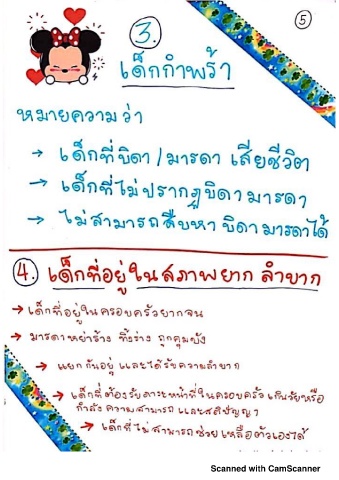 5
3.
เด็กกำพร้า
หมายความว่า
→ เด็กที่บิดา/มารดา เสียชีวิต
→ เด็กที่ไม่ปรากฏบิดามารดา
→ ไม่สามารถสืบหา บิดา มารดาได้
4. เด็กที่อยู่ในสภาพยาก ลำบาก
→ เด็กที่อยู่ในครอบครัวยากจน
→ มารดาหย่าร้าง ทิ้งร่าง ถูกคุมขัง
→ แยกกันอยู่ และได้รับความลำบาก
→ เด็กที่ต้องรับภาระหน้าที่ในครอบครัว เกินวัยหรือ
กำลังความสามารถ และสติปัญญา
→ เด็กที่ไม่สามารถช่วยเหลือตัวเองได้
Scanned with CamScanner